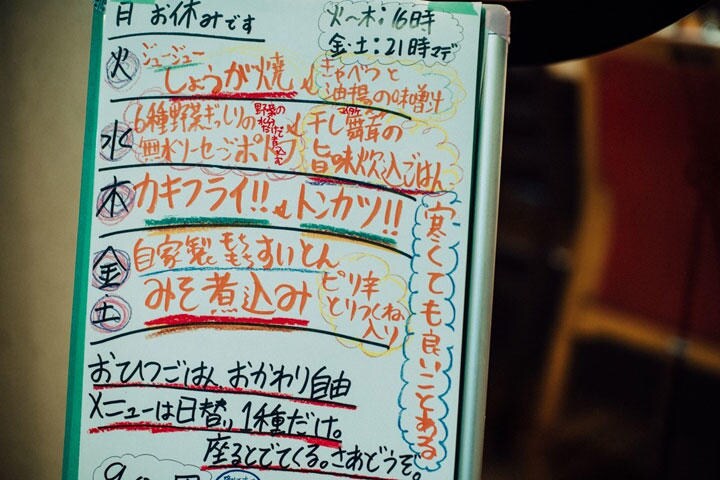 月 お休みです
火〜木:16時
金・土:21時マデ
火
ジュージュー
しょうが焼
キャベツと
油揚の味噌汁
水
6種野菜ぎっしりの
無水ソーセージポトフ
野菜の
水分だけで
煮込む
干し舞茸の
旨味炊込ごはん
木
カキフライ!!
トンカツ!!
金
土
自家製もちもちすいとん
みそ煮込み
ピリ辛
とりつくね
入り
寒くても良いことある
おひつごはん おかわり自由
メニューは日替り、1種だけ。
座るとでてくる。さあどうぞ。